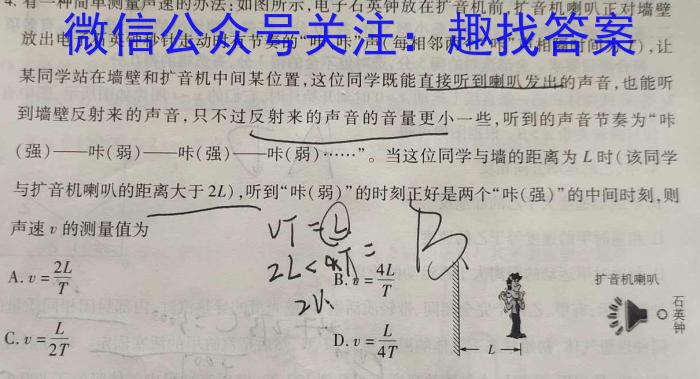 4. 有一种简单测量声速的办法:如图所示,电子石英钟放在扩音机前,扩音机喇叭正对墙壁
微信公众号关注:趣找答案
放出电子石英钟秒针走动时有节奏的“咔、咔”声(每相邻两 ),让
某同学站在墙壁和扩音机中间某位置,这位同学既能直接听到喇叭发出的声音,也能听
到墙壁反射来的声音,只不过反射来的声音的音量更小一些,听到的声音节奏为“咔
(强)——咔(弱)——咔(强)——咔(弱)……”。当这位同学与墙的距离为 L 时(该同学
与扩音机喇叭的距离大于 2L),听到“咔(弱)”的时刻正好是两个“咔(强)”的中间时刻,则
声速 v 的测量值为
VT = L
2L < 4T =
2V
A. v = 2L/T
B. v = 4L/T
C. v = L/2T
D. v = L/4T
扩音机喇叭
石英钟
L